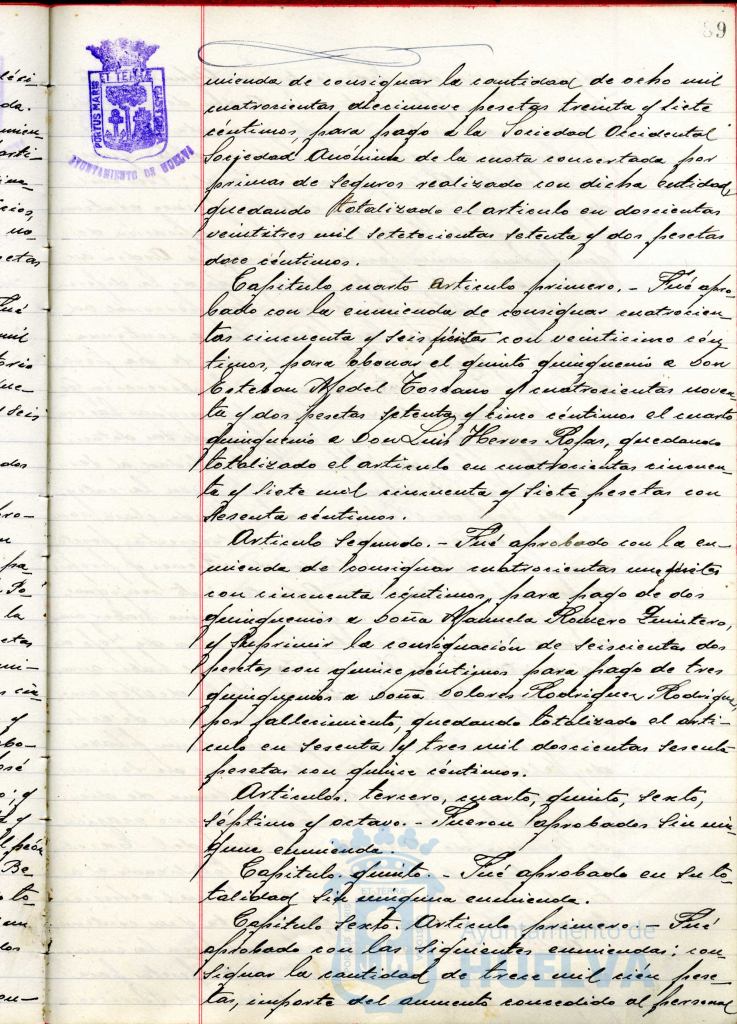 89
PORTUS MARIS ET TERRÆ CUSTODIA
AYUNTAMIENTO DE HUELVA
mienda de consignar la cantidad de ocho mil
cuatrocientas diecinueve pesetas treinta y siete
céntimos, para pago a la Sociedad Occidental
Sociedad Anónima de la cuota concertada por
primas de Seguros realizado con dicha entidad,
quedando totalizado el articulo en doscientas
veintitres mil setetocientas setenta y dos pesetas
doce céntimos.
Capitulo cuarto articulo primero. - Fué apro-
bado con la enmienda de consignar cuatrocien-
tas cincuenta y seis pesetas con veinticinco cén-
timos, para abonar el quinto quinquenio a Don
Esteban Medel Toscano y cuatrocientas noven-
ta y dos pesetas setenta y cinco céntimos el cuarto
quinquenio a Don Luis Herves Rofas, quedando
totalizado el articulo en cuatrocientas cincuen-
ta y siete mil cincuenta y siete pesetas con
sesenta céntimos.
Articulo Segundo. - Fué aprobado con la en-
mienda de consignar cuatrocientas una pesetas
con cincuenta céntimos, para pago de dos
quinquenios a Doña Manuela Romero Quintero,
y suprimir la consignación de seiscientas dos
pesetas con quince céntimos para pago de tres
quinquenios a Doña Dolores Rodriguez Rodriguez,
por fallecimiento, quedando totalizado el arti-
culo en sesenta y tres mil doscientas sesenta
pesetas con quince céntimos.
Articulos. tercero, cuarto, quinto, sexto,
séptimo y octavo. - Fueron aprobados sin nin-
guna enmienda.
Capitulo quinto. - Fué aprobado en su to-
talidad sin ninguna enmienda.
Capitulo Sexto. Articulo primero - Fué
aprobado con las siguientes enmiendas: con-
signar la cantidad de trece mil cién pese-
tas, importe del aumento concedido al personal
Ayuntamiento de
HUELVA